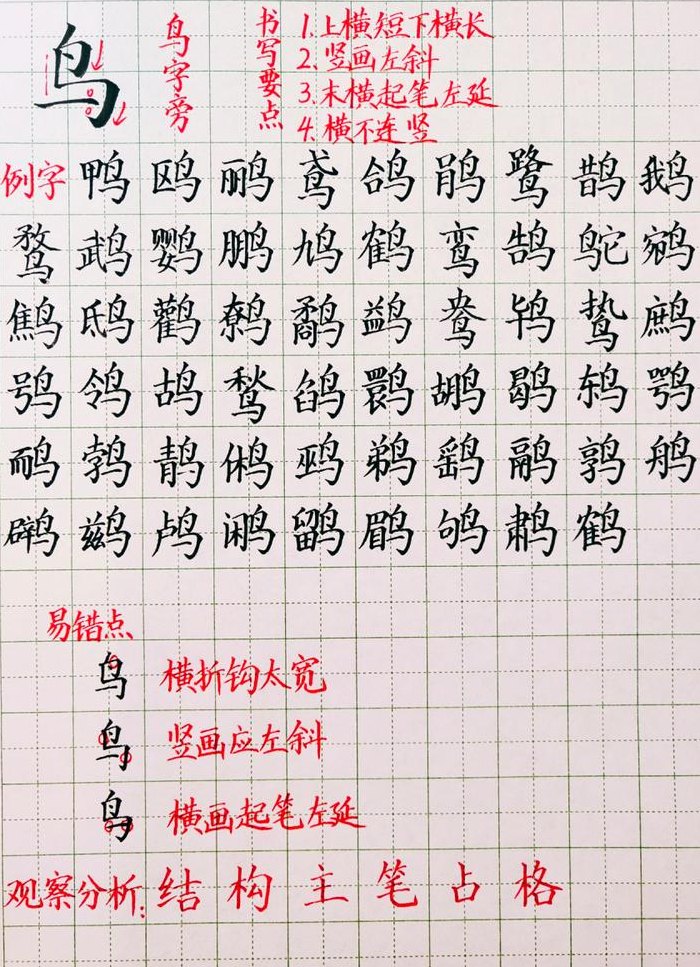 鸟
鸟字旁
书写要点
1.上横短下横长
2.竖画左斜
3.末横起笔左延
4.横不连竖
例字 鸭 鸥 鹂 鸢 鸽 鹃 鹭 鹊 鹅
鹜 鹉 鹦 鹏 鸠 鹤 鸾 鹄 鸵 鹓
鹪 鸱 鹳 鹩 鹬 鹢 鸯 鸨 鸷 鹧
鸮 鸰 鸪 鹙 鹐 鹮 鹕 鹖 鸫 鹗
鸸 鹁 䴖 鸺 鹀 鹈 鹞 鹝 鹑 鸼
䴙 鹚 鸬 鹇 鹠 鹛 鸲 鹔 鹤
易错点
鸟 横折钩太宽
鸟 竖画应左斜
鸟 横画起笔左延
观察分析:结构主笔占格